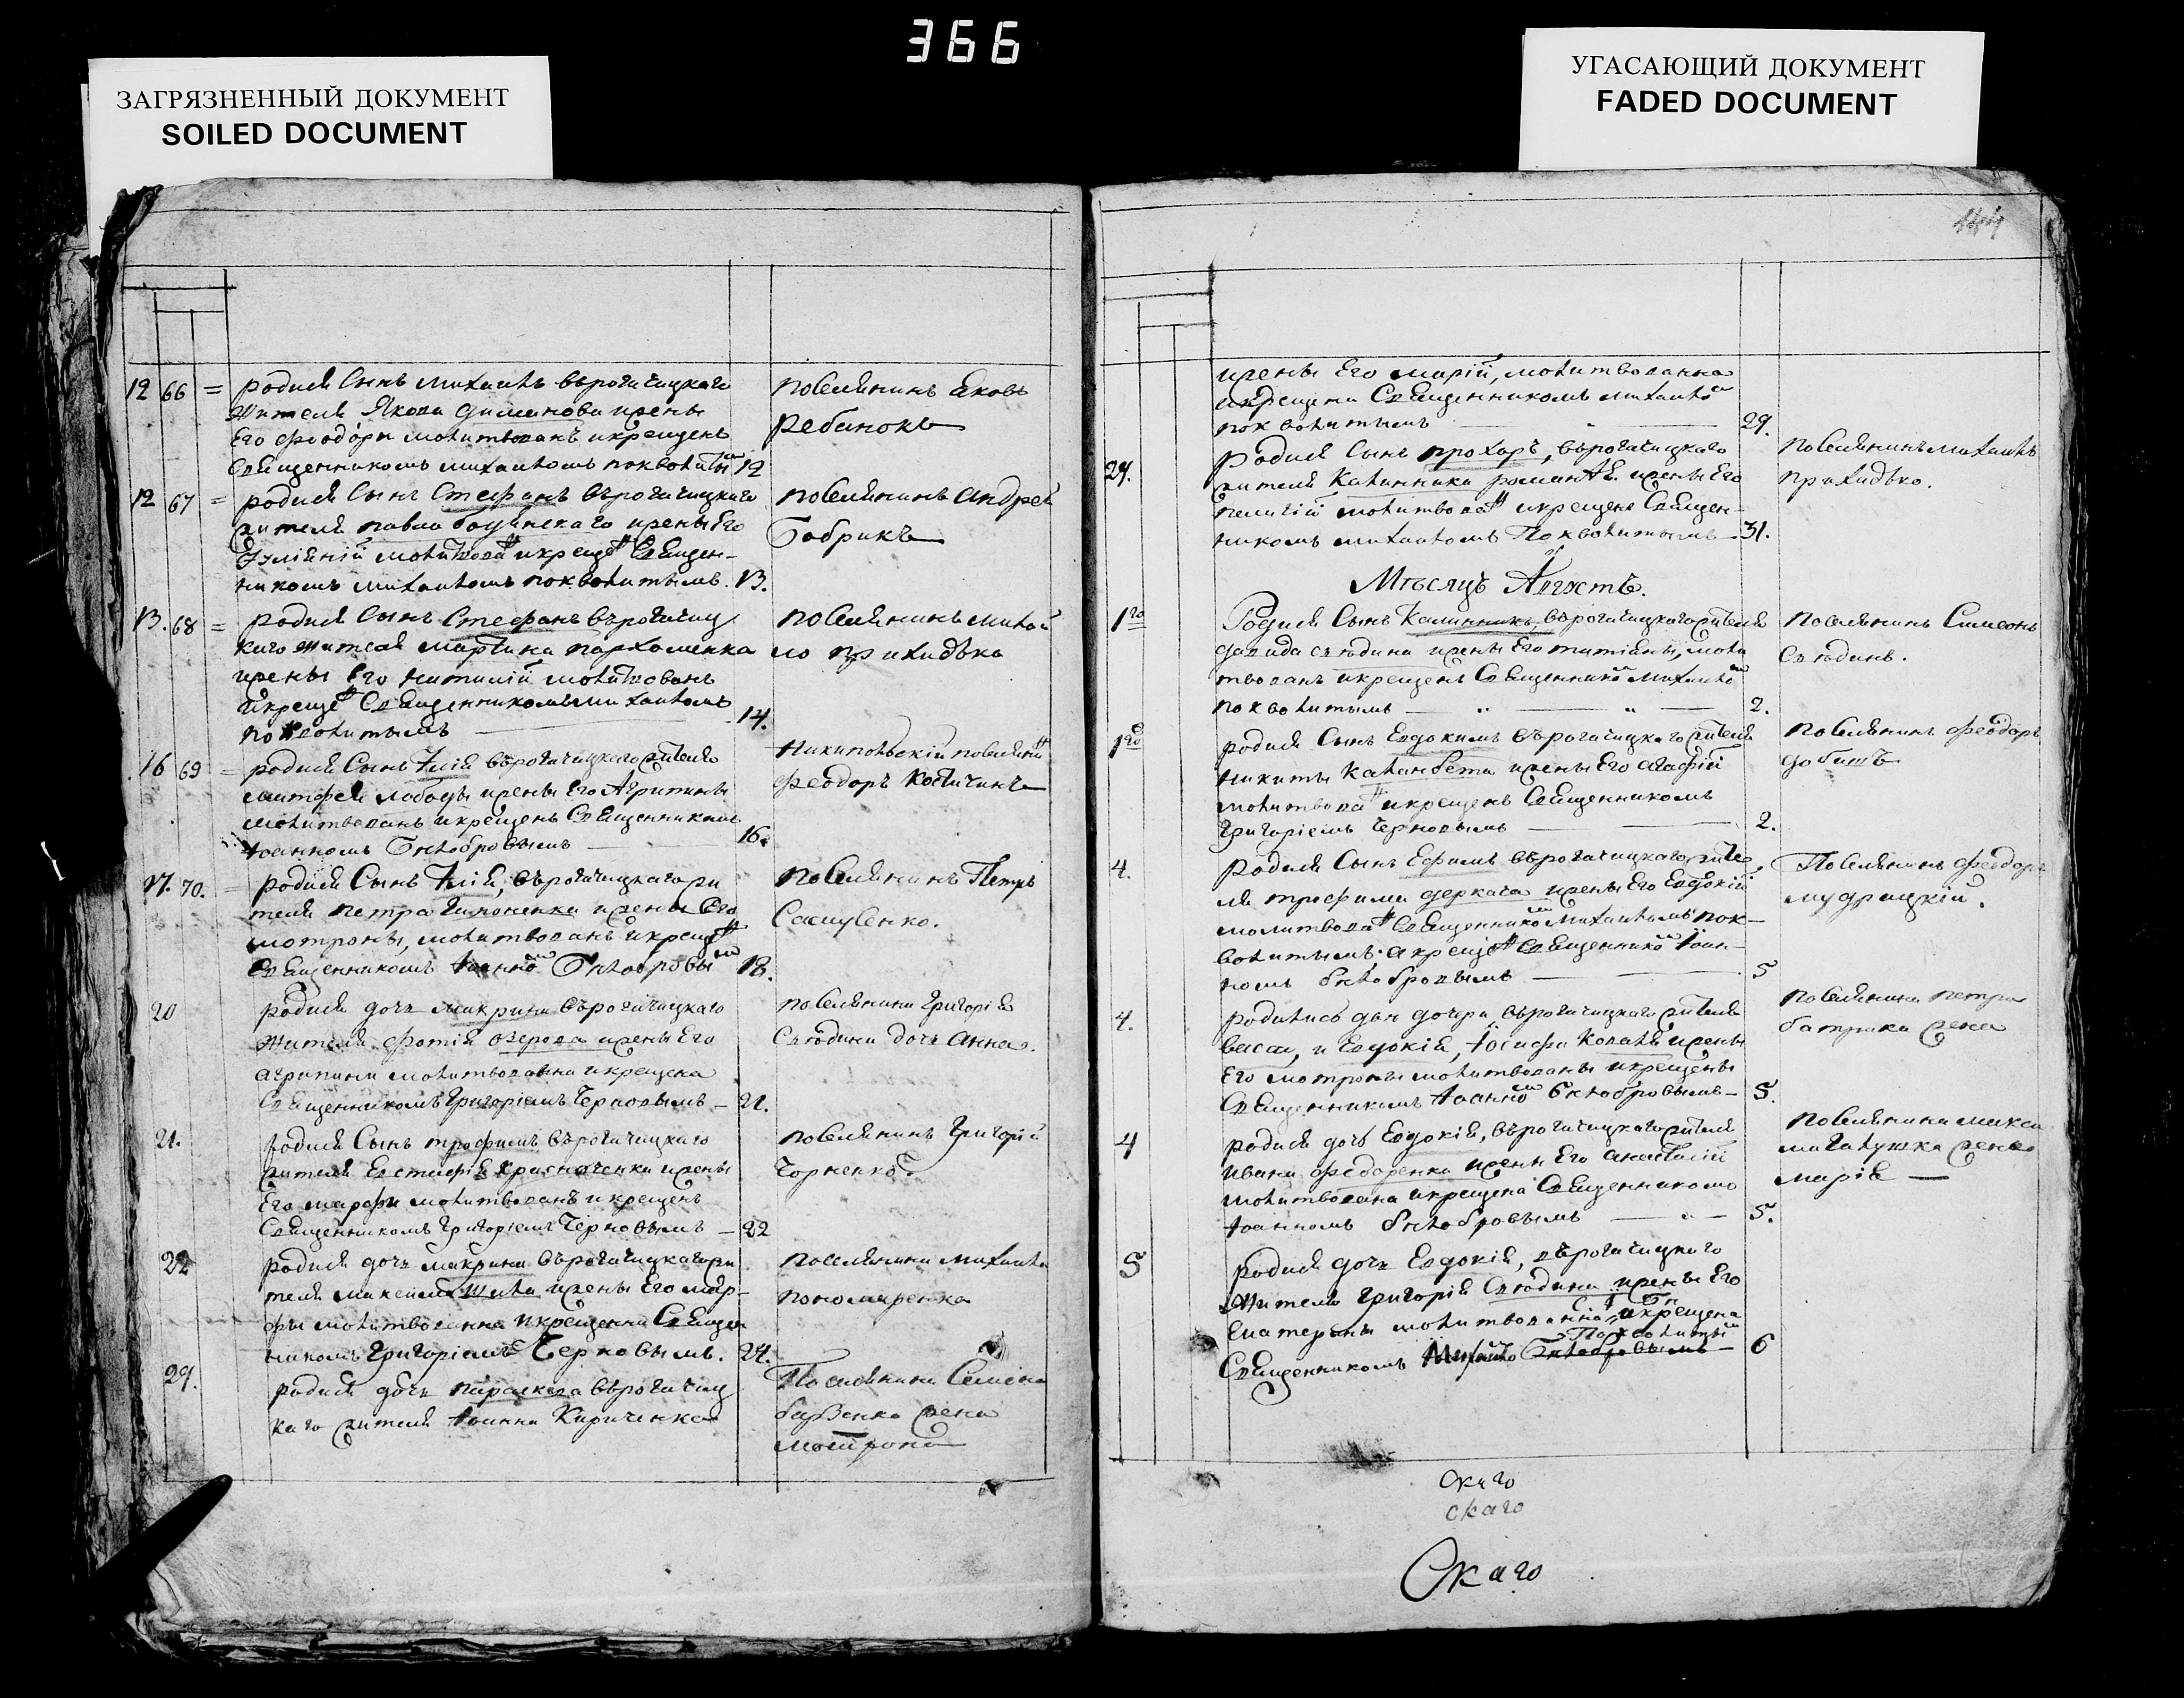 366
ЗАГРЯЗНЕННЫЙ ДОКУМЕНТ
SOILED DOCUMENT
УГАСАЮЩИЙ ДОКУМЕНТ
FADED DOCUMENT
144
12 66 = родися Сынъ михаилъ върогачицкаго
жителя Якова диманова ижены
Его феодоры молитвованъ икрещенъ
Священникомъ михаиломъ похвалитым 12
поселянинъ Яковъ
Ребанокъ
12 67 = родися Сынъ Стефанъ върогачицкаго
жителя павла боцынскаго ижены Его
Гулiянiй молитвован икрещен Священ-
никомъ михаиломъ похвалитымъ. 13.
поселянинъ Андрей
Бобрикъ
13. 68 = родися Сынъ Стефанъ върогачиц
каго жителя мартина пархоменка
ижены Его наталiй молитвованъ
икрещен Священникомъ михаиломъ
похвалитымъ 14.
поселянинъ михай
ло прихидько
16 69 = родися Сынъ Илiя върогачицкаго жителя
митофея лободы ижены Его Агрипины
молитвованъ икрещенъ Священникомъ
Iоанномъ Бѣлобровымъ 16.
Никипольскiй поселянин
Феодоръ Костичинъ
17. 70. = родися Сынъ Илiя, върогачицкаго жи
теля петра Тихоненка ижены Его
мотроны, молитвованъ икрещен
Священникомъ Iоанном Бѣлобровым 18.
поселянинъ Петръ
Сакуненко.
20 родися дочь макрина върогачицкаго
жителя фотiя озерова ижены Его
агрипины молитвована икрещена
Священникомъ Григорiемъ Черновымъ — 21.
поселянина Григорiя
Сюдина дочь Анна.
21. родися Сынъ трофимъ върогачицкаго
жителя Евстафiя красноченка ижены
Его марфы молитвованъ икрещенъ
Священникомъ Григорiемъ Черновымъ — 22
поселянинъ Григорiй
Чорненко.
22 родися дочь макрина върогачицкаго жи
теля максима шила ижены Его мар-
фы молитвованна икрещенна Священ
никомъ Григорiемъ Черновымъ. 24.
поселянина михаила
пономаренка
29. родися дочь параскева върогачиц
каго жителя Iоанна Кириченка
Поселянина Семена
жена
мотрона
ижены Его марiй, молитвованна
икрещена Священникомъ михаилом
похвалитымъ 29.
29. Родися Сынъ прохоръ, върогачицкаго
жителя Калинника ижены Его
пелагiй молитвован икрещенъ Священ-
никомъ михаиломъ Похвалитымъ 31.
поселянинъ михаилъ
прихидько.
Мѣсяцъ Августъ.
1го Родися Сынъ Калинникъ върогачицкаго жителя
давида сюдина ижены Его татiяны, моли
твованъ икрещенъ Священником михаилом
похвалитымъ — „ — „ — 2.
поселянинъ Симеонъ
Сюдинъ.
1го родися Сынъ Евдокимъ върогачицкаго жителя
никиты ижены Его агафiй
молитвован икрещенъ Священникомъ
Григорiемъ Черновымъ — 2.
поселянинъ феодоръ
добишъ
4. родися Сынъ Ефимъ върогачицкаго жите
ля трофима деркача ижены Его Евдокiй
молитвован Священником михаиломъ пох-
валитымъ; а крещен Священником Iоан-
номъ бѣлобровымъ — 5
Поселянинъ феодоръ
мудрицкiй.
4. родилися двѣ дочери върогачицкаго жителя
васса, и Евдокiя, Iосифа Коваля ижены
Его мотроны молитвованы икрещены
Священникомъ Iоанном бѣлобровымъ — 5.
поселянина петра
батрака жена
4 родися дочь Евдокiя, върогачицкаго жителя
ивана федоренка ижены Его анастасiй
молитвована икрещена Священникомъ
Iоанномъ бѣлобровымъ — „ — 5.
поселянина макси
ма жена
марiя —
5 родися дочь Евдокiя, върогачицкаго
жителя Григорiя Сюдина ижены Его
Екатерины молитвованна, икрещена
Священникомъ Михаило Похвалитым Бѣлобровымъ — 6
скаго
скаго
Скаго